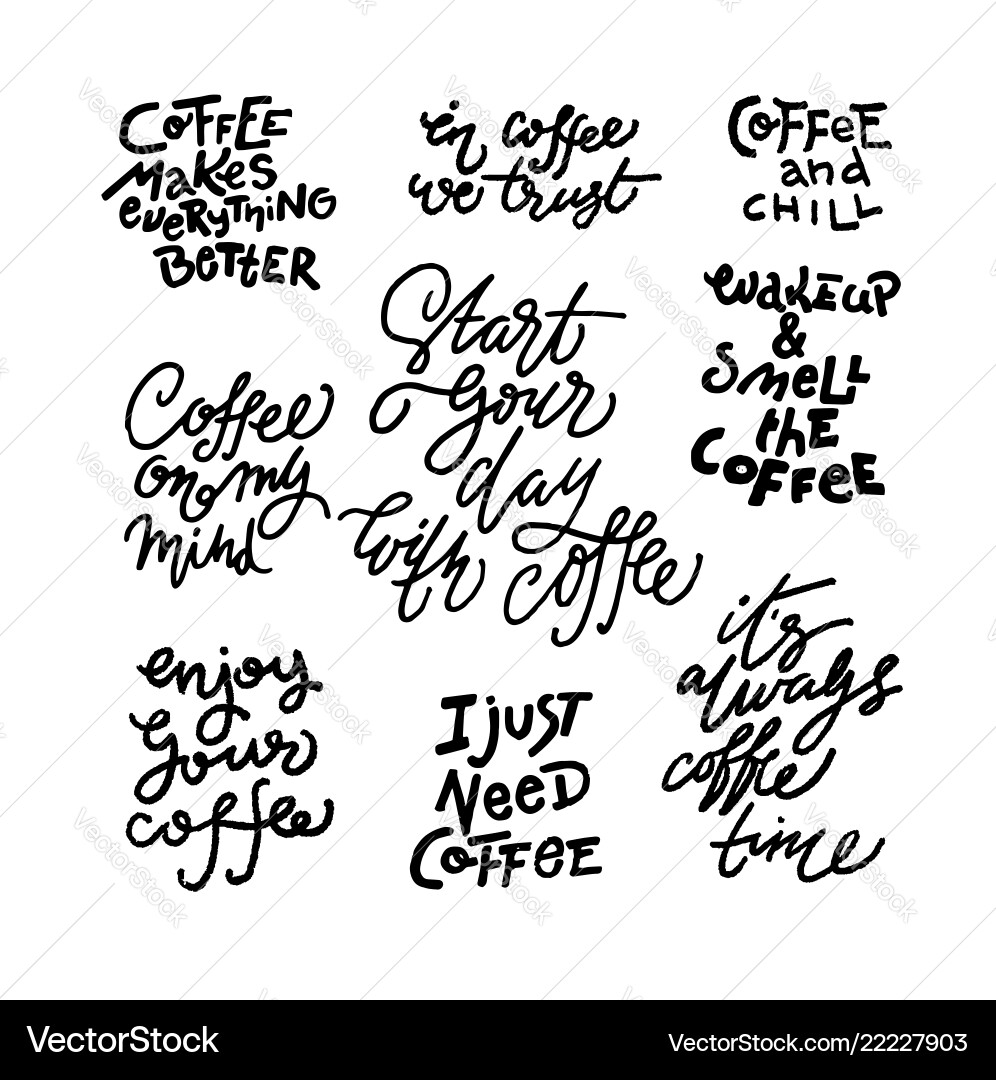 COFFEE
MAKES
EVERYTHING
BETTER
in coffee
we trust
COFFEE
and
CHILL
Start
your
day
with coffee
WAKE UP
&
SMELL
THE
COFFEE
Coffee
on my
mind
enjoy
your
coffee
I JUST
NEED
COFFEE
it's
always
coffee
time
VectorStock®
VectorStock.com/22227903